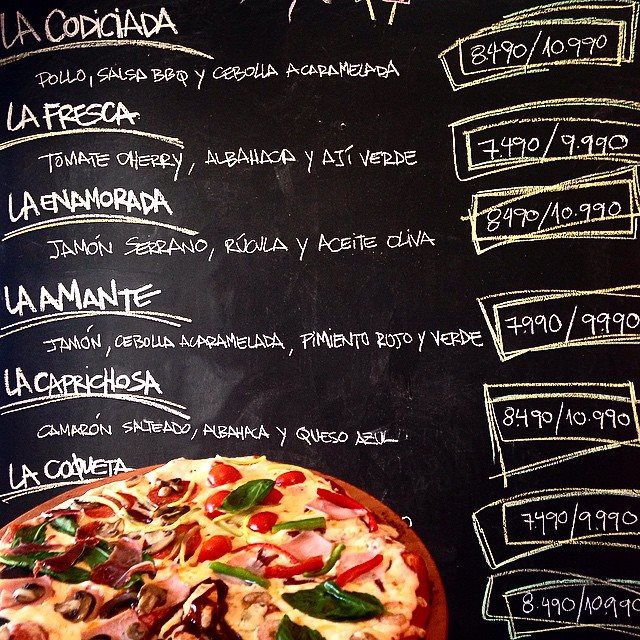 LA CODICIADA 8.490/10.990
POLLO, SALSA BBQ Y CEBOLLA ACARAMELADA
LA FRESCA 7.490/9.990
TOMATE CHERRY, ALBAHACA Y AJÍ VERDE
LA ENAMORADA 8490/10.990
JAMÓN SERRANO, RÚCULA Y ACEITE OLIVA
LA AMANTE 7.990/9.990
JAMÓN, CEBOLLA ACARAMELADA, PIMIENTO ROJO Y VERDE
LA CAPRICHOSA 8490/10.990
CAMARÓN SALTEADO, ALBAHACA Y QUESO AZUL
LA COQUETA 7.490/9.990
8.490/10.990